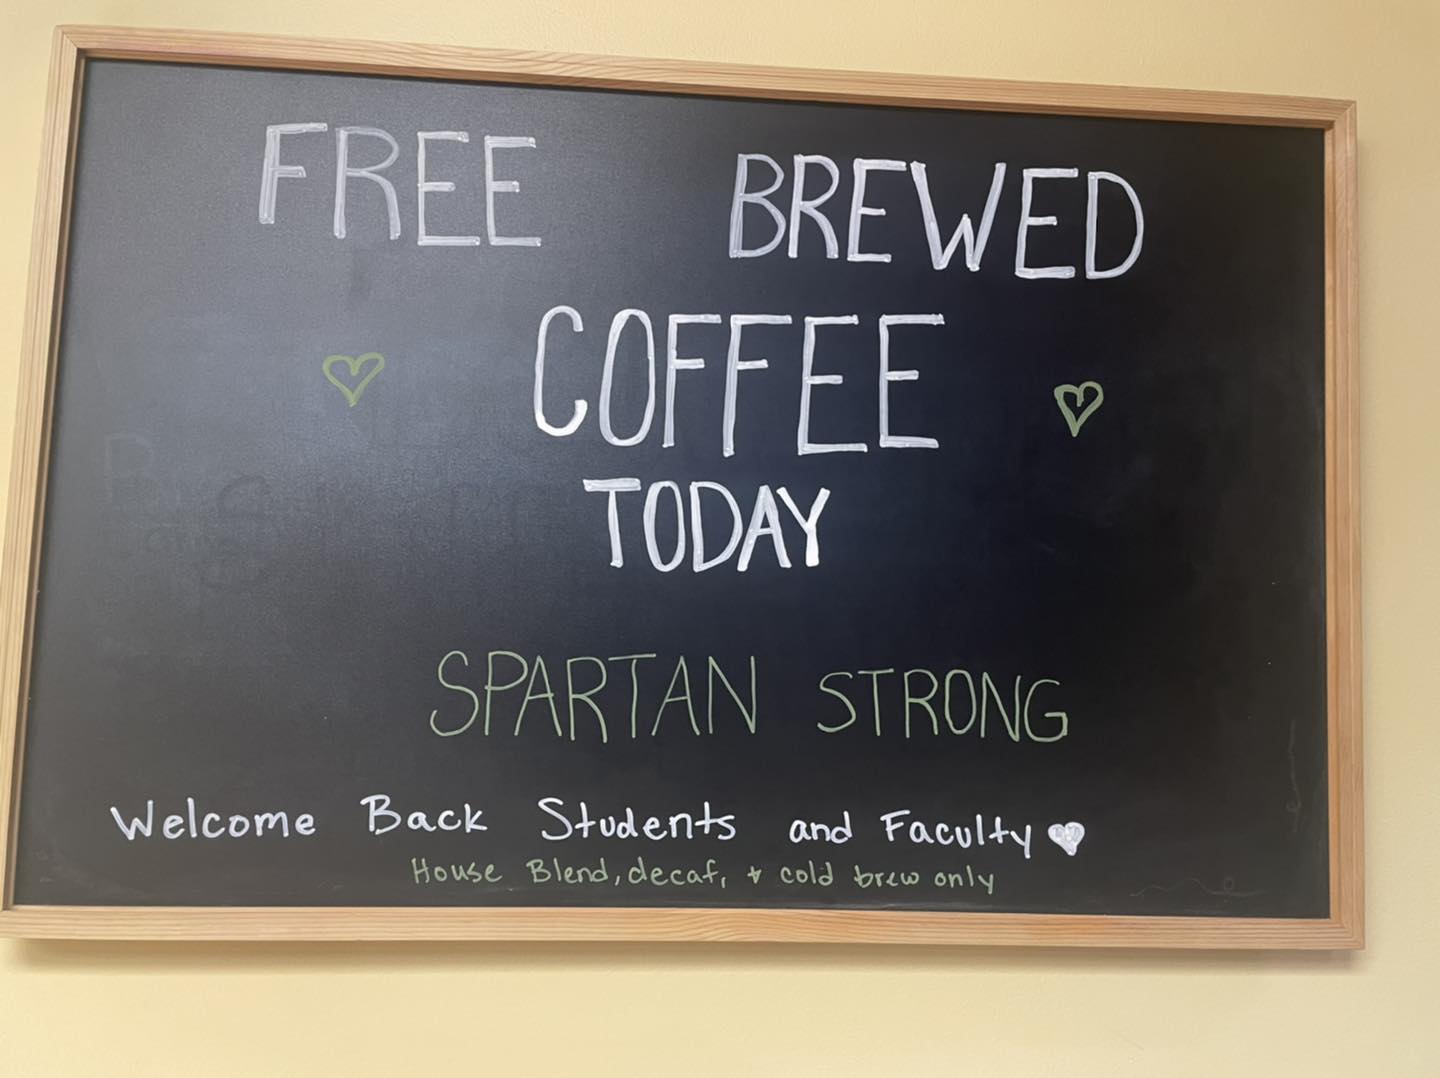 FREE BREWED
COFFEE
TODAY
SPARTAN STRONG
Welcome Back Students and Faculty
House Blend, decaf, + cold brew only